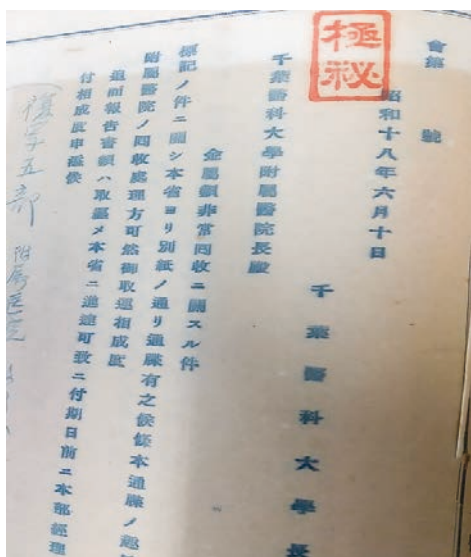 會第 號
極秘
昭和十八年六月十日
千葉醫科大學長
千葉醫科大學附屬醫院長殿
金屬類非常回收ニ關スル件
標記ノ件ニ關シ本省ヨリ別紙ノ通リ通牒有之候條本通牒ノ趣
附屬醫院ノ回收處理方可然御取運相成度
追而報告書類ハ取纒メ本省ニ進達可致ニ付期日前ニ本部經理
付相成度申添候
復写五部 附属医院